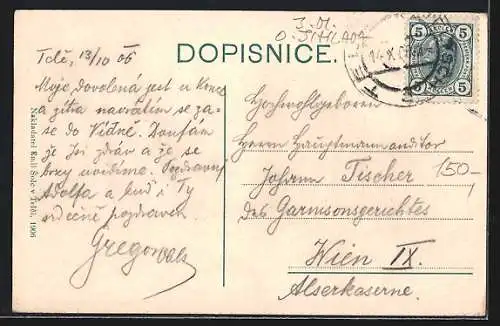 3. M.
O. JIHLAVA
DOPISNICE.
Telč, 13/10 06
Moje dovolená jest u konce
a zítra navrátím se za-
se do Vídně. Doufám
že Jsi zdráv a že se
brzy uvidíme. Pozdravuj
Adolfa a buď i Ty
srdečně pozdraven
Gregor
Nakladatel Emil Šolc v Telči, 1906
5 5
5 5
TEL
14.X.0
Hochwohlgeboren
Herrn Hauptmannauditor
Johann Tischer
des Garnisonsgerichtes
150,-
Wien IX.
Alserkaserne.